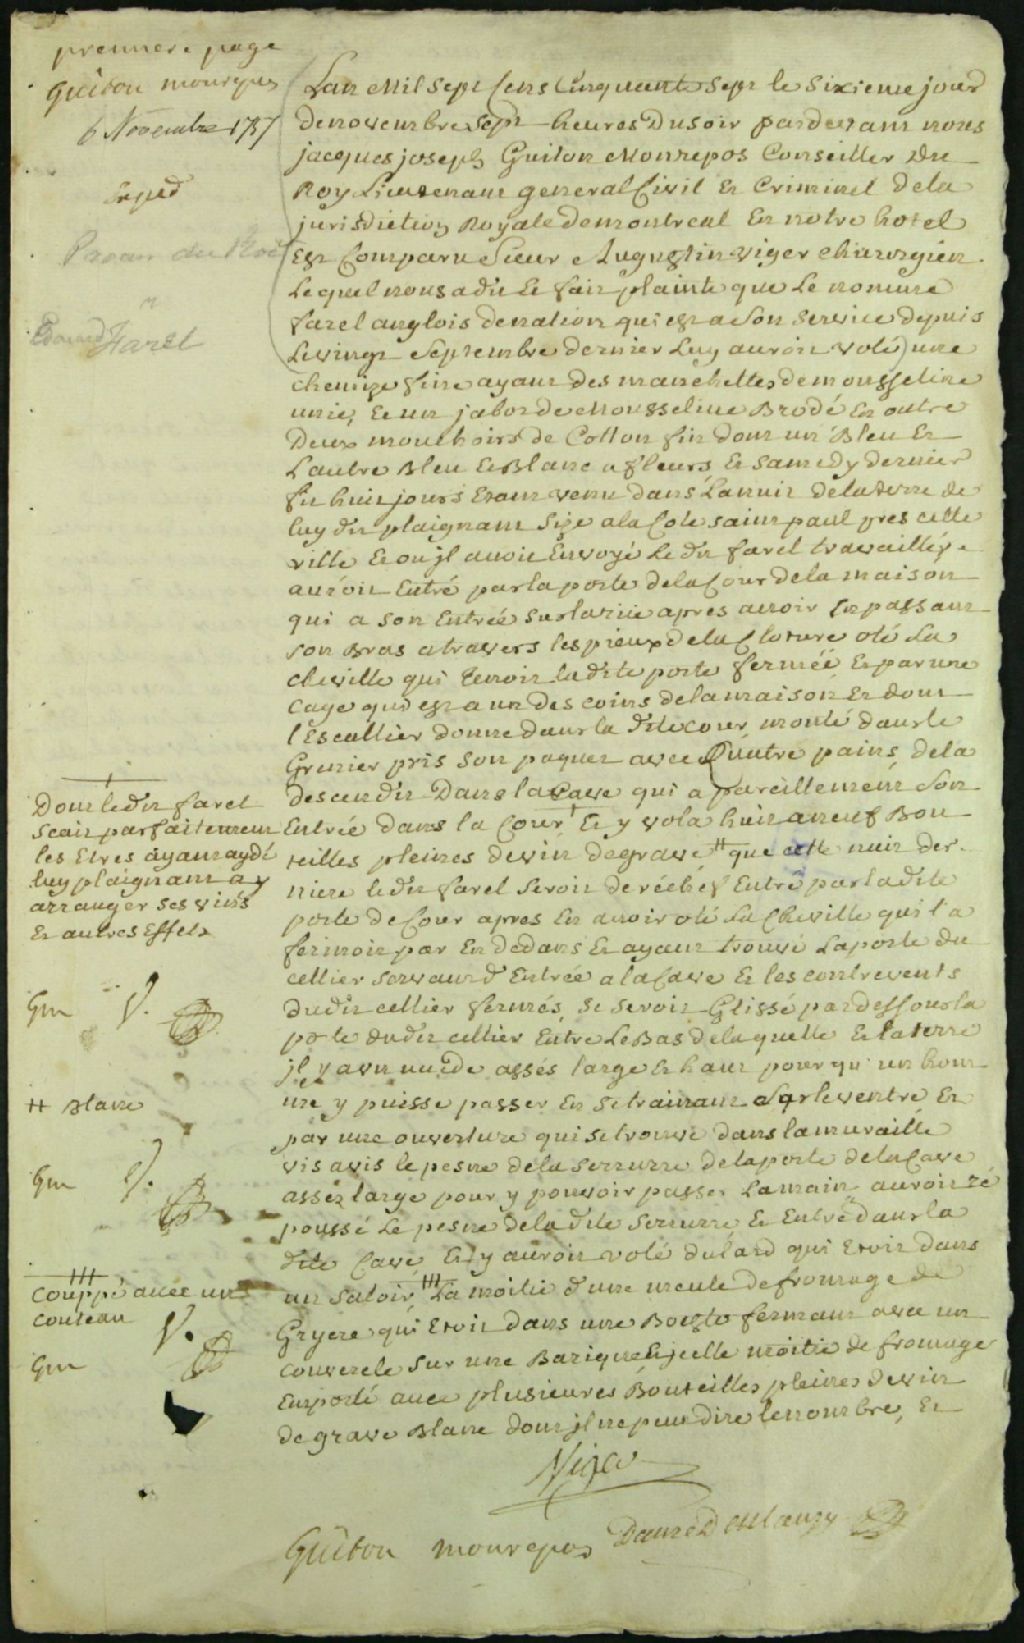 premiere page
Guiton monrepos
6 Novembre 1757
Exped
Edouard Farel
Lan Mil Sept Cens Cinquante Sept le Sixieme jour
denovembre Sept heures Du soir pardevant nous
jacques joseph Guiton Monrepos Conseiller Du
Roy Lieutenant general Civil Et Criminel dela
jurisdiction Royale demontreal En notre hotel
Est Comparu Sieur Augustin viger chirurgien
Lequel nous a dit Et fait plainte que Le nommé
farel anglois denation qui est a Son Service depuis
Le vingt Septembre dernier Luy auroit volé une
chemize fine ayant Des manchettes demousseline
unie, Et un jabot de Mousseline Brodé En outre
Deux mouchoirs de Cotton fin dont un Bleu Et
Lautre Bleu Et Blanc a fleurs Et Samedy dernier
fit huit jours Etant venu dans Lanuit delaterre de
luy dit plaignant Size a la Cote saint paul pres cette
ville Et ou jl avoit Envoyé Le dit farel travailler
auroit Entré par la porte dela Cour dela maison
qui a Son Entrée Sur la rue apres avoir En passant
son Bras a travers les pieux de la Cloture oté La
cheville qui Tenoit ladite porte fermée Et par une
cage qui est a un des coins dela maison Et dont
lEscallier donne dans la dite cour, monté dans le
Grenier pris Son paquet avec Quatre pains, dela
descendit Dans la Cave qui a pareillement Son
Entrée dans la Cour, Et y vola huit a neuf Bou
teilles pleines de vin de grave # que cette nuit der
niere ledit farel Seroit derechef Entré par la dite
porte de Cour apres En avoir oté La Cheville qui la
fermoit par En dedans Et ayant trouvé La porte du
cellier Servant d'Entrée a la Cave Et les contrevents
dudit cellier fermés, Se Seroit Glissé par dessous la
porte dudit cellier Entre Le Bas de laquelle Et la terre
jl y a un vuide assés large Et haut pour qu'un hom
me y puisse passer En Se trainant Sur le ventre Et
par une ouverture qui Se trouve dans la muraille
vis avis le pesne de la Serrurre de la porte de la Cave
assez large pour y pouvoir passer La main auroit re
poussé Le pesne de la dite Serrurre, Et Entré dans la
dite Cave Et y auroit volé du lard qui Etoit dans
un Saloir, ||| La moitié d'une meule de fromage de
Gryere qui Etoit dans une Boeste fermant avec un
couvercle Sur une Barique Et jcelle moitié de fromage
Emporté avec plusieures Bouteilles pleines de vin
de grave Blanc dont jl ne peut dire le nombre, Et
Dont le dit farel
Scait parfaitement
les Etres ayant aydé
luy plaignant a y
arranger Ses vins
Et autres Effets
Gm V.
# Blanc
Gm V.
||| couppé avec un
couteau
V.
Gm
Viger
Guiton monrepos Danré DeBlanzy